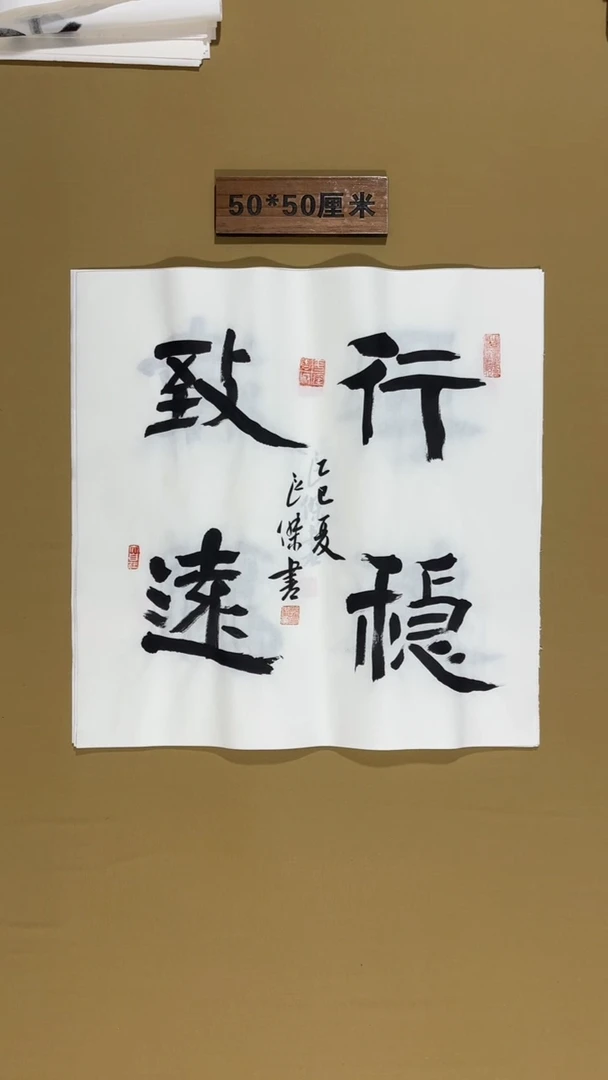 50*50厘米
行穩
致遠
乙巳夏
良傑書